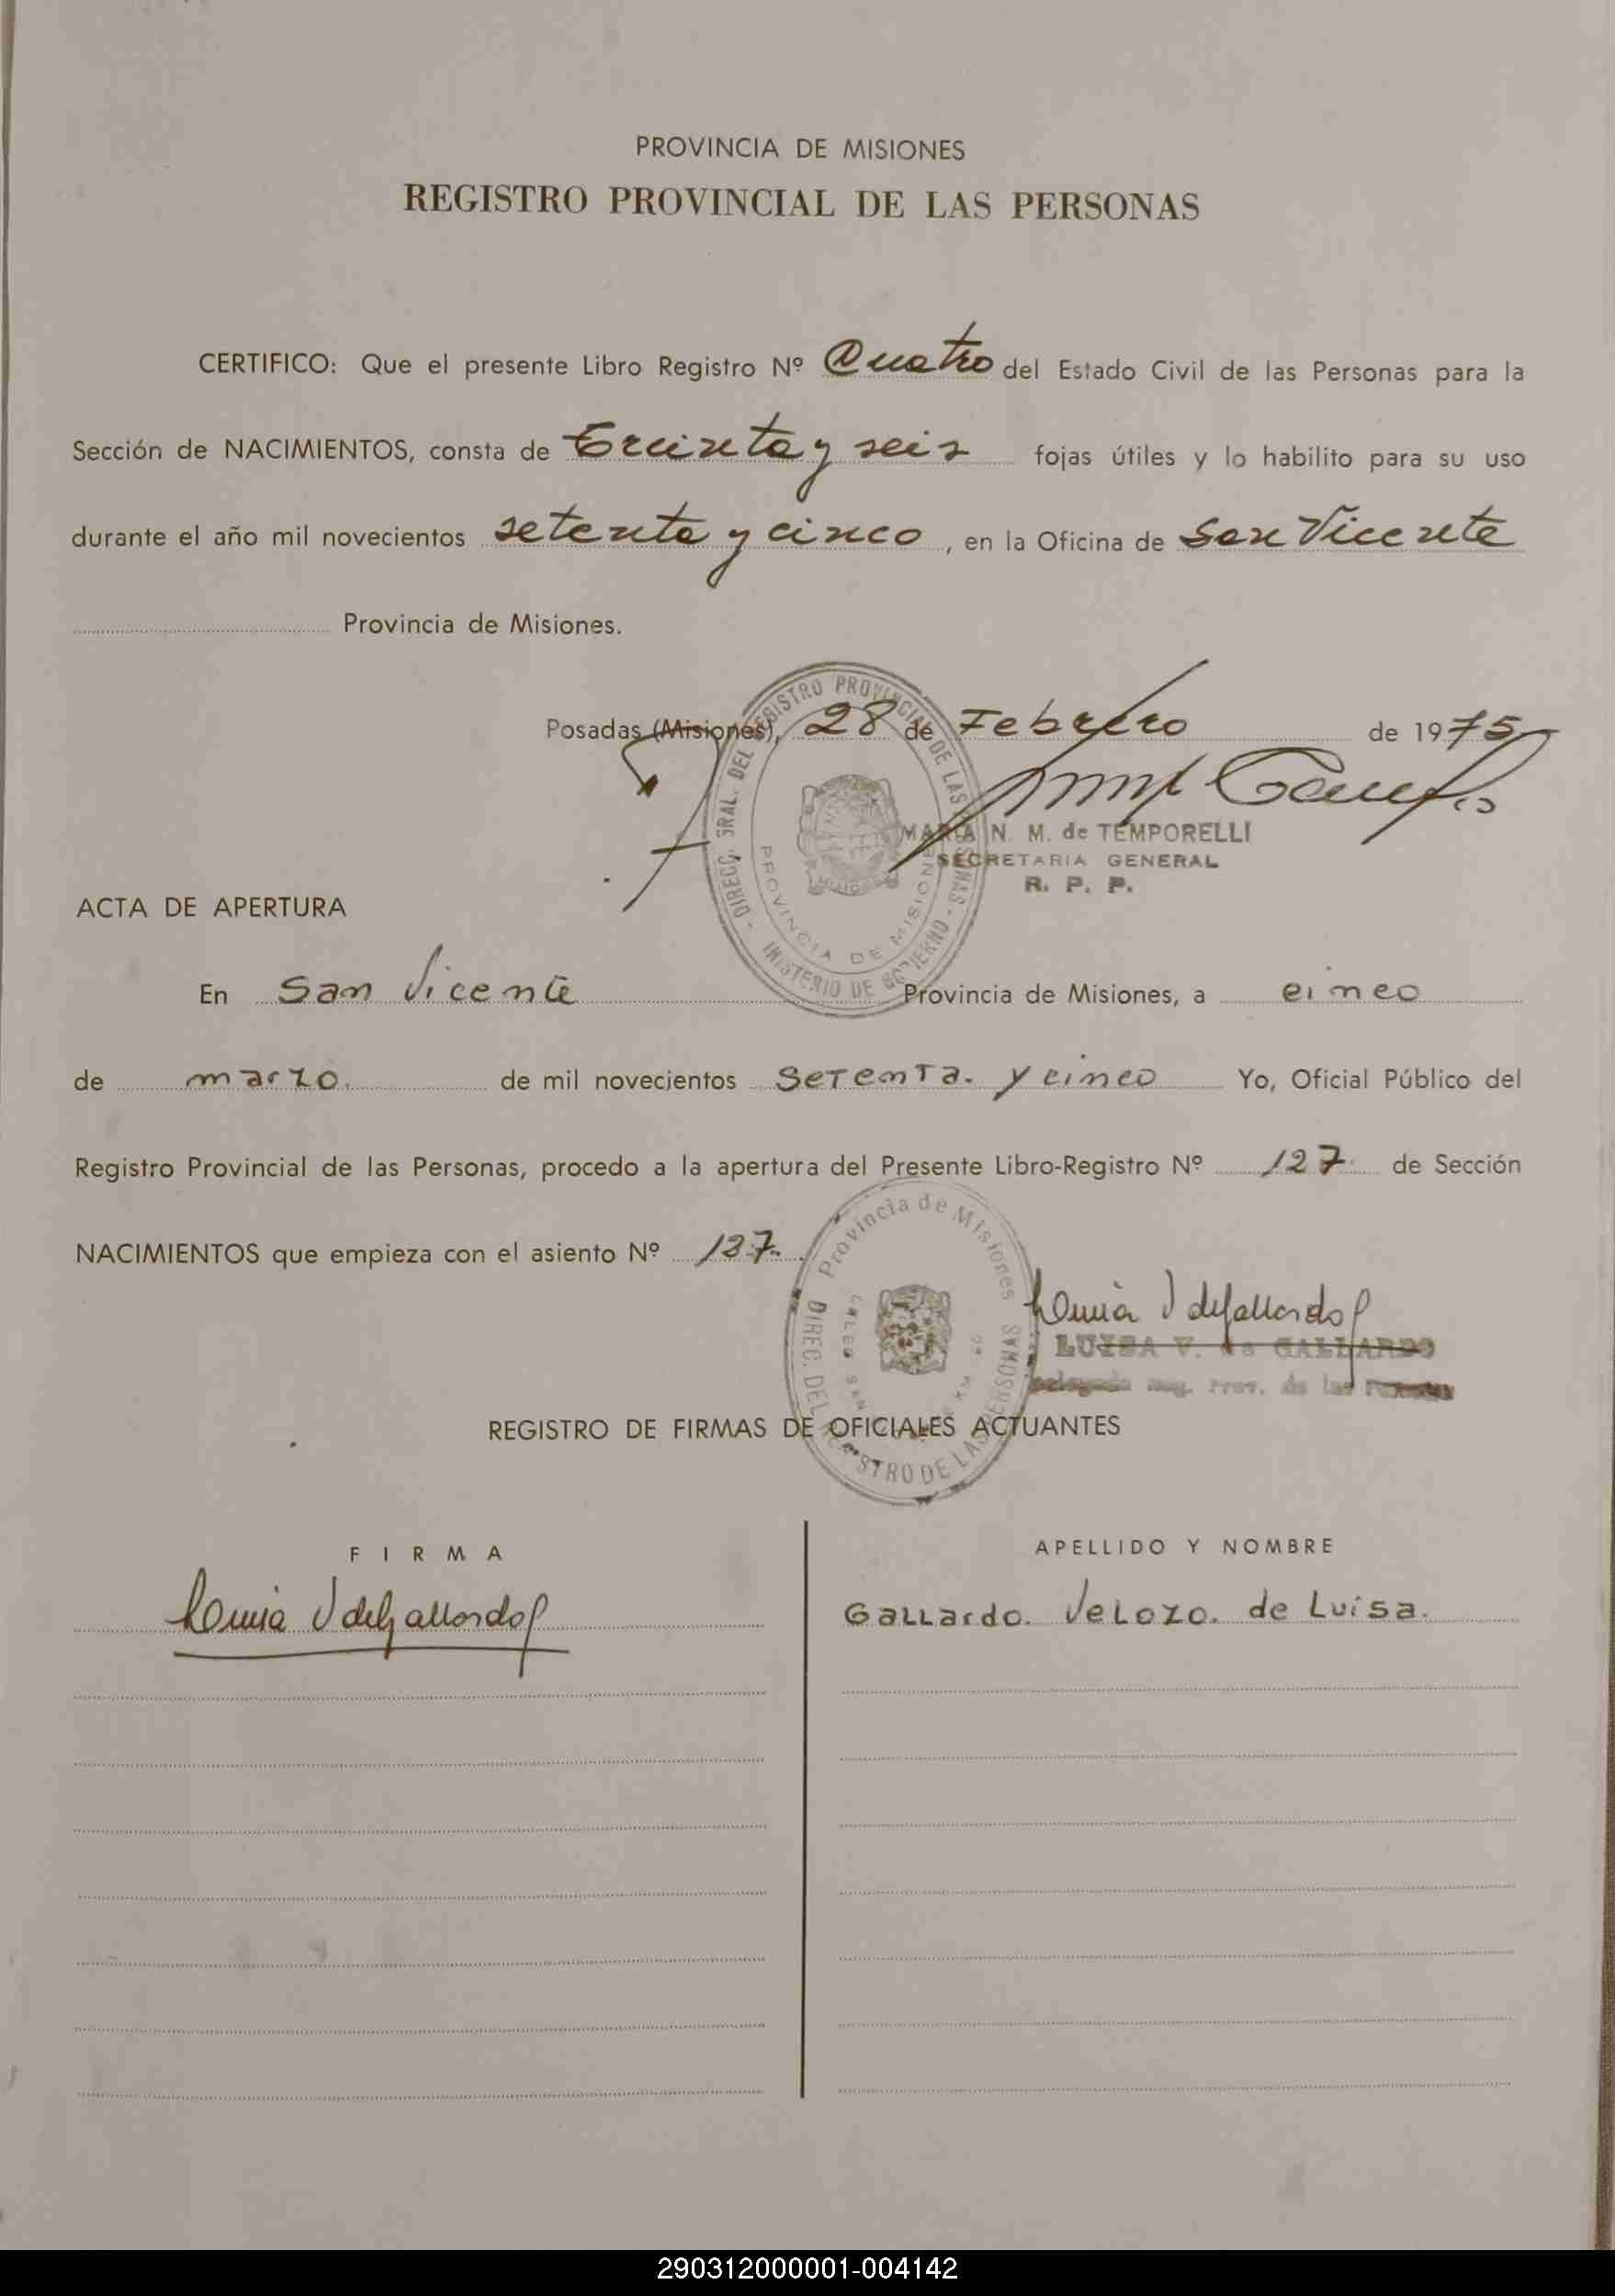 PROVINCIA DE MISIONES
REGISTRO PROVINCIAL DE LAS PERSONAS
CERTIFICO: Que el presente Libro Registro Nº Cuatro del Estado Civil de las Personas para la
Sección de NACIMIENTOS, consta de Treinta y seis fojas útiles y lo habilito para su uso
durante el año mil novecientos setenta y cinco, en la Oficina de San Vicente
Provincia de Misiones.
Posadas (Misiones), 28 de Febrero de 1975
MARIA N. M. de TEMPORELLI
SECRETARIA GENERAL
R. P. P.
DIRECC. GRAL. DEL REGISTRO PROVINCIAL DE LAS PERSONAS - MINISTERIO DE GOBIERNO -
PROVINCIA DE MISIONES
ACTA DE APERTURA
En San Vicente Provincia de Misiones, a cinco
de marzo. de mil novecientos Setenta. y cinco Yo, Oficial Público del
Registro Provincial de las Personas, procedo a la apertura del Presente Libro-Registro Nº 127 de Sección
NACIMIENTOS que empieza con el asiento Nº 127.
Provincia de Misiones
LUISA V. de GALLARDO
Delegada Reg. Prov. de las Personas
REGISTRO DE FIRMAS DE OFICIALES ACTUANTES
FIRMA APELLIDO Y NOMBRE
Gallardo. Velozo. de Luisa.
290312000001-004142